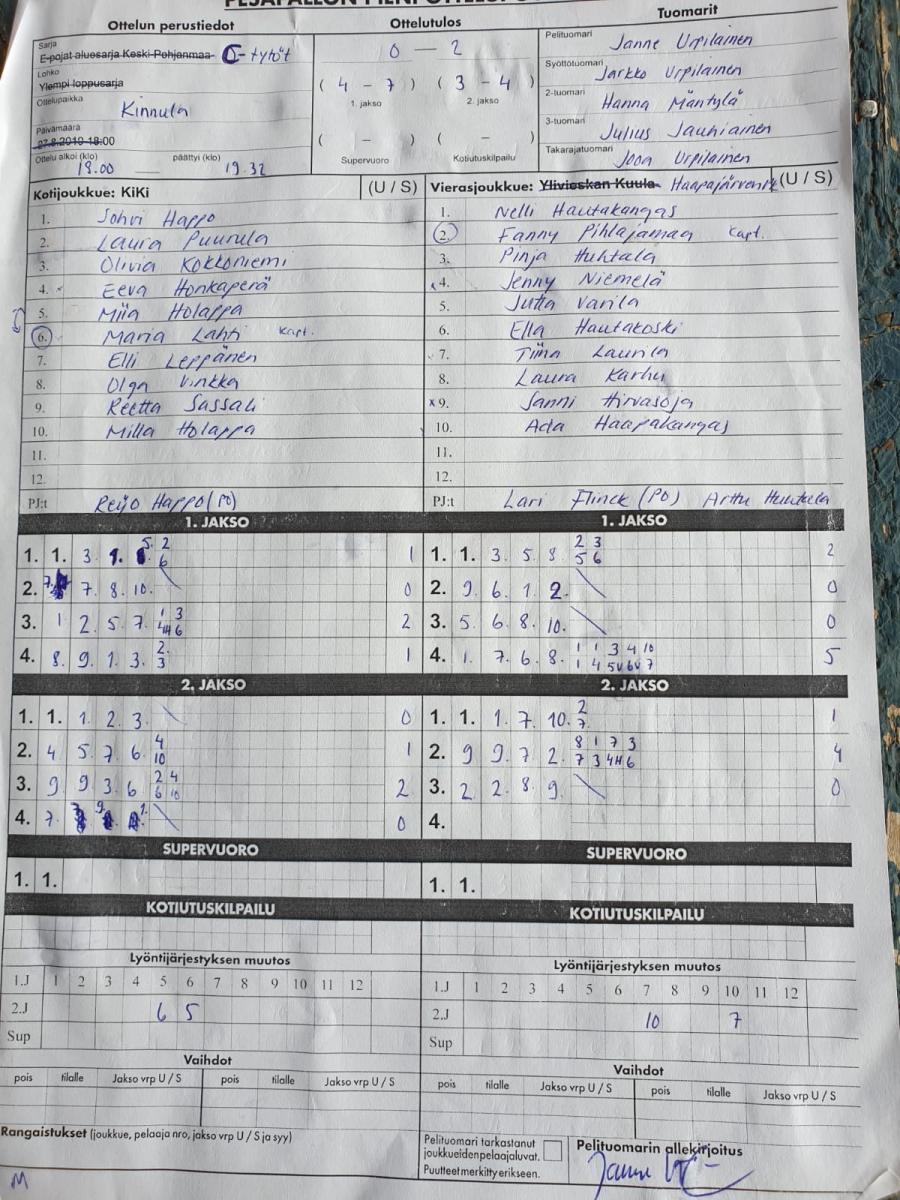 Ottelun perustiedot
Ottelutulos
Tuomarit
Sarja
E-pojat aluesarja Keski-Pohjanmaa C-tytöt
Lohko
Ylempi loppusarja
Ottelupaikka
Kinnula
Päivämäärä
27.8.2019 18:00
Ottelu alkoi (klo) päättyi (klo)
18.00 19.32
0 - 2
( 4 - 7 ) ( 3 - 4 )
1. jakso 2. jakso
( - ) ( - )
Supervuoro Kotiutuskilpailu
Pelituomari Janne Urpilainen
Syöttötuomari Jarkko Urpilainen
2-tuomari Hanna Mäntylä
3-tuomari Julius Jauhiainen
Takarajatuomari Joon Urpilainen
Kotijoukkue: KiKi (U / S)
1. Sohvi Happo
2. Laura Puurula
3. Olivia Kokkoniemi
4. Eeva Honkaperä
5. Miia Holappa
6. Maria Lahti kapt.
7. Elli Leppänen
8. Olga Vinkka
9. Reetta Sassali
10. Milla Holappa
11.
12.
PJ:t Reijo Happo (PO)
Vierasjoukkue: Ylivieskan Kuula (U / S)
1. Nelli Hautakangas
2. Fanny Pihlajamaa kapt.
3. Pinja Huhtala
4. Jenny Niemelä
5. Jutta Varila
6. Ella Hautakoski
7. Tiina Laurila
8. Laura Karhu
x 9. Sanni Hirvasoja
10. Ada Haapakangas
11.
12.
PJ:t Lari Flinck (PO) Arttu Huhtala
1. JAKSO
1. 1. 3. 5. 2 6 1
2. 7. 7. 8. 10. 0
3. 1 2. 5. 7. 1 3 4H 6 2
4. 8. 9. 1. 3. 2. 3 1
1. JAKSO
1. 1. 3. 5. 8. 2 3 5 6 2
2. 9. 6. 1. 2. 0
3. 5. 6. 8. 10. 0
4. 1. 7. 6. 8. 1 1 3 4 10 1 4 5V 6V 7 5
2. JAKSO
1. 1. 1. 2. 3. 0
2. 4 5. 7 6. 4 10 1
3. 9 9 3 6 2 4 6 10 2
4. 7. 0
2. JAKSO
1. 1. 1. 7. 10. 2 7. 1
2. 9 9. 7 2. 8 1 7 3 7 3 4H 6 4
3. 2 2. 8 9. 0
4.
SUPERVUORO
1. 1.
SUPERVUORO
1. 1.
KOTIUTUSKILPAILU
KOTIUTUSKILPAILU
Lyöntijärjestyksen muutos
1.J 1 2 3 4 5 6 7 8 9 10 11 12
2.J 6 5
Sup
Lyöntijärjestyksen muutos
1.J 1 2 3 4 5 6 7 8 9 10 11 12
2.J 10 7
Sup
Vaihdot
pois tilalle Jakso vrp U / S pois tilalle Jakso vrp U / S
Vaihdot
pois tilalle Jakso vrp U / S pois tilalle Jakso vrp U / S
Rangaistukset (joukkue, pelaaja nro, jakso vrp U / S ja syy)
Pelituomari tarkastanut
joukkueiden pelaajaluvat.
Puutteet merkitty erikseen.
Pelituomarin allekirjoitus
M